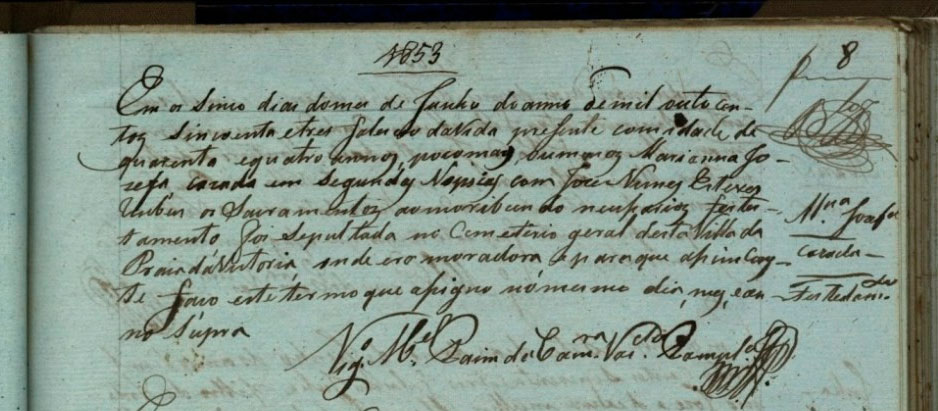 1853
8
Em os Sinco dias do mes de Junho do anno de mil outo cen-
tos Sincoenta e tres faleceo da vida presente com idade de
quarenta e quatro annos, pocomais oumenos Marianna Jo-
zefa, cazada em Segundas Nupsias com Joze Nunes Esteves
os Sacramentos aomoribundo testa-
tamento foi Sepultada no Cemeterio geral desta Villa da
Praia da Victoria onde era moradora e para que assim Cons-
te faco este termo que asigno nó mesmo dia, mes, e an-
no Supra
Vigº. Mel. Paim da Camra.
Mna. Jozefa
cazada